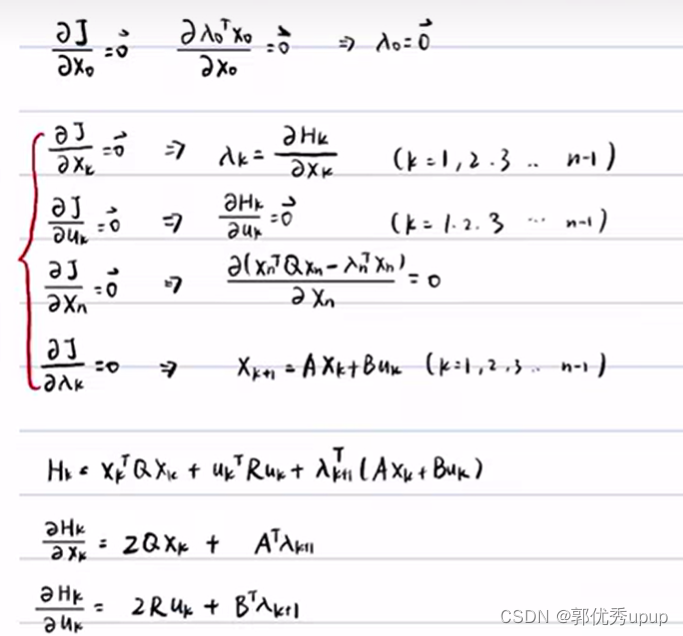 ∂J/∂x₀ = 0⃗  ∂λ₀ᵀx₀/∂x₀ = 0⃗ ⇒ λ₀ = 0⃗
∂J/∂xₖ = 0⃗ ⇒ λₖ = ∂Hₖ/∂xₖ (k=1,2.3 .. n-1)
∂J/∂uₖ = 0⃗ ⇒ ∂Hₖ/∂uₖ = 0⃗ (k=1.2.3 ... n-1)
∂J/∂xₙ = 0⃗ ⇒ ∂(xₙᵀQxₙ-λₙᵀxₙ)/∂xₙ = 0
∂J/∂λₖ = 0 ⇒ xₖ₊₁ = Axₖ+Buₖ (k=1,2,3.. n-1)
Hₖ = xₖᵀQxₖ + uₖᵀRuₖ + λₖ₊₁ᵀ(Axₖ+Buₖ)
∂Hₖ/∂xₖ = 2Qxₖ + Aᵀλₖ₊₁
∂Hₖ/∂uₖ = 2Ruₖ + Bᵀλₖ₊₁
CSDN @郭优秀upup